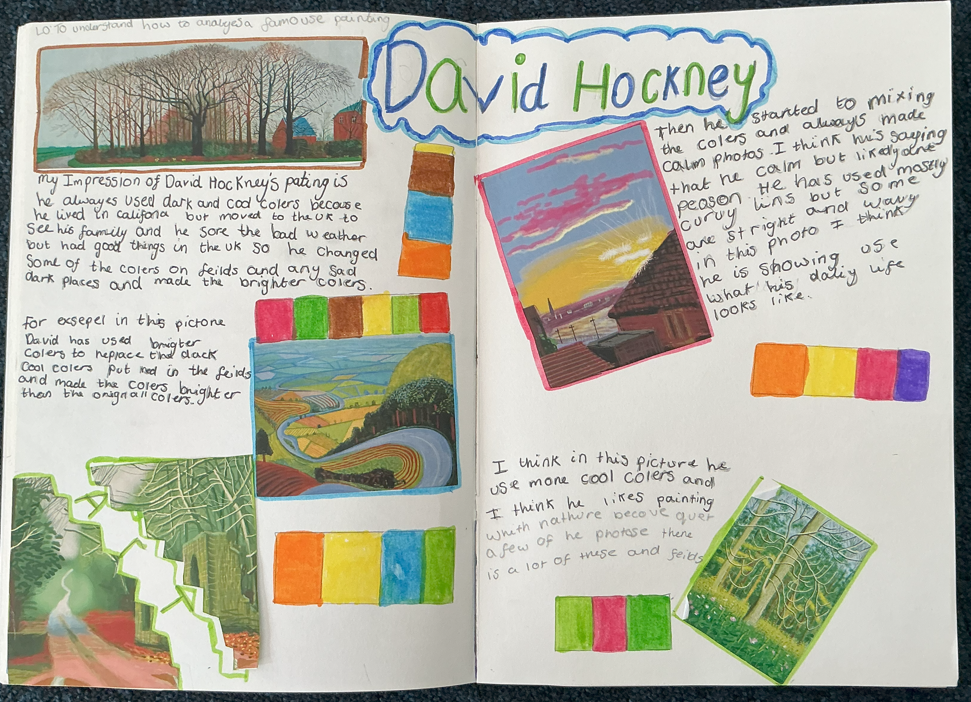 LO To understand how to analyesa famouse painting
David Hockney
my Impression of David Hockney's pating is
he alwayes used dark and cool colers because
he lived in califona but moved to the UK to
see his family and he sore the bad weather
but had good things in the UK so he changed
some of the colers on feilds and any sad
dark places and made the brighter colers.
For exsepel in this pictore
David has used brigter
colers to replace the dack
cool colers put red in the feilds
and made the colers brighter
then the orignall colers.
then he started to mixing
the colers and always made
calm photos I think he's saeping
that he calm but likely
peason. He has used mostly
curvy lins but some
are stright and wavy
in this photo I think
he is showing use
what his daliy life
looks like.
I think in this picture he
use more cool colers and
I think he likes painting
whith nathure becove quer
a few of he photose there
is a lot of these and feilds